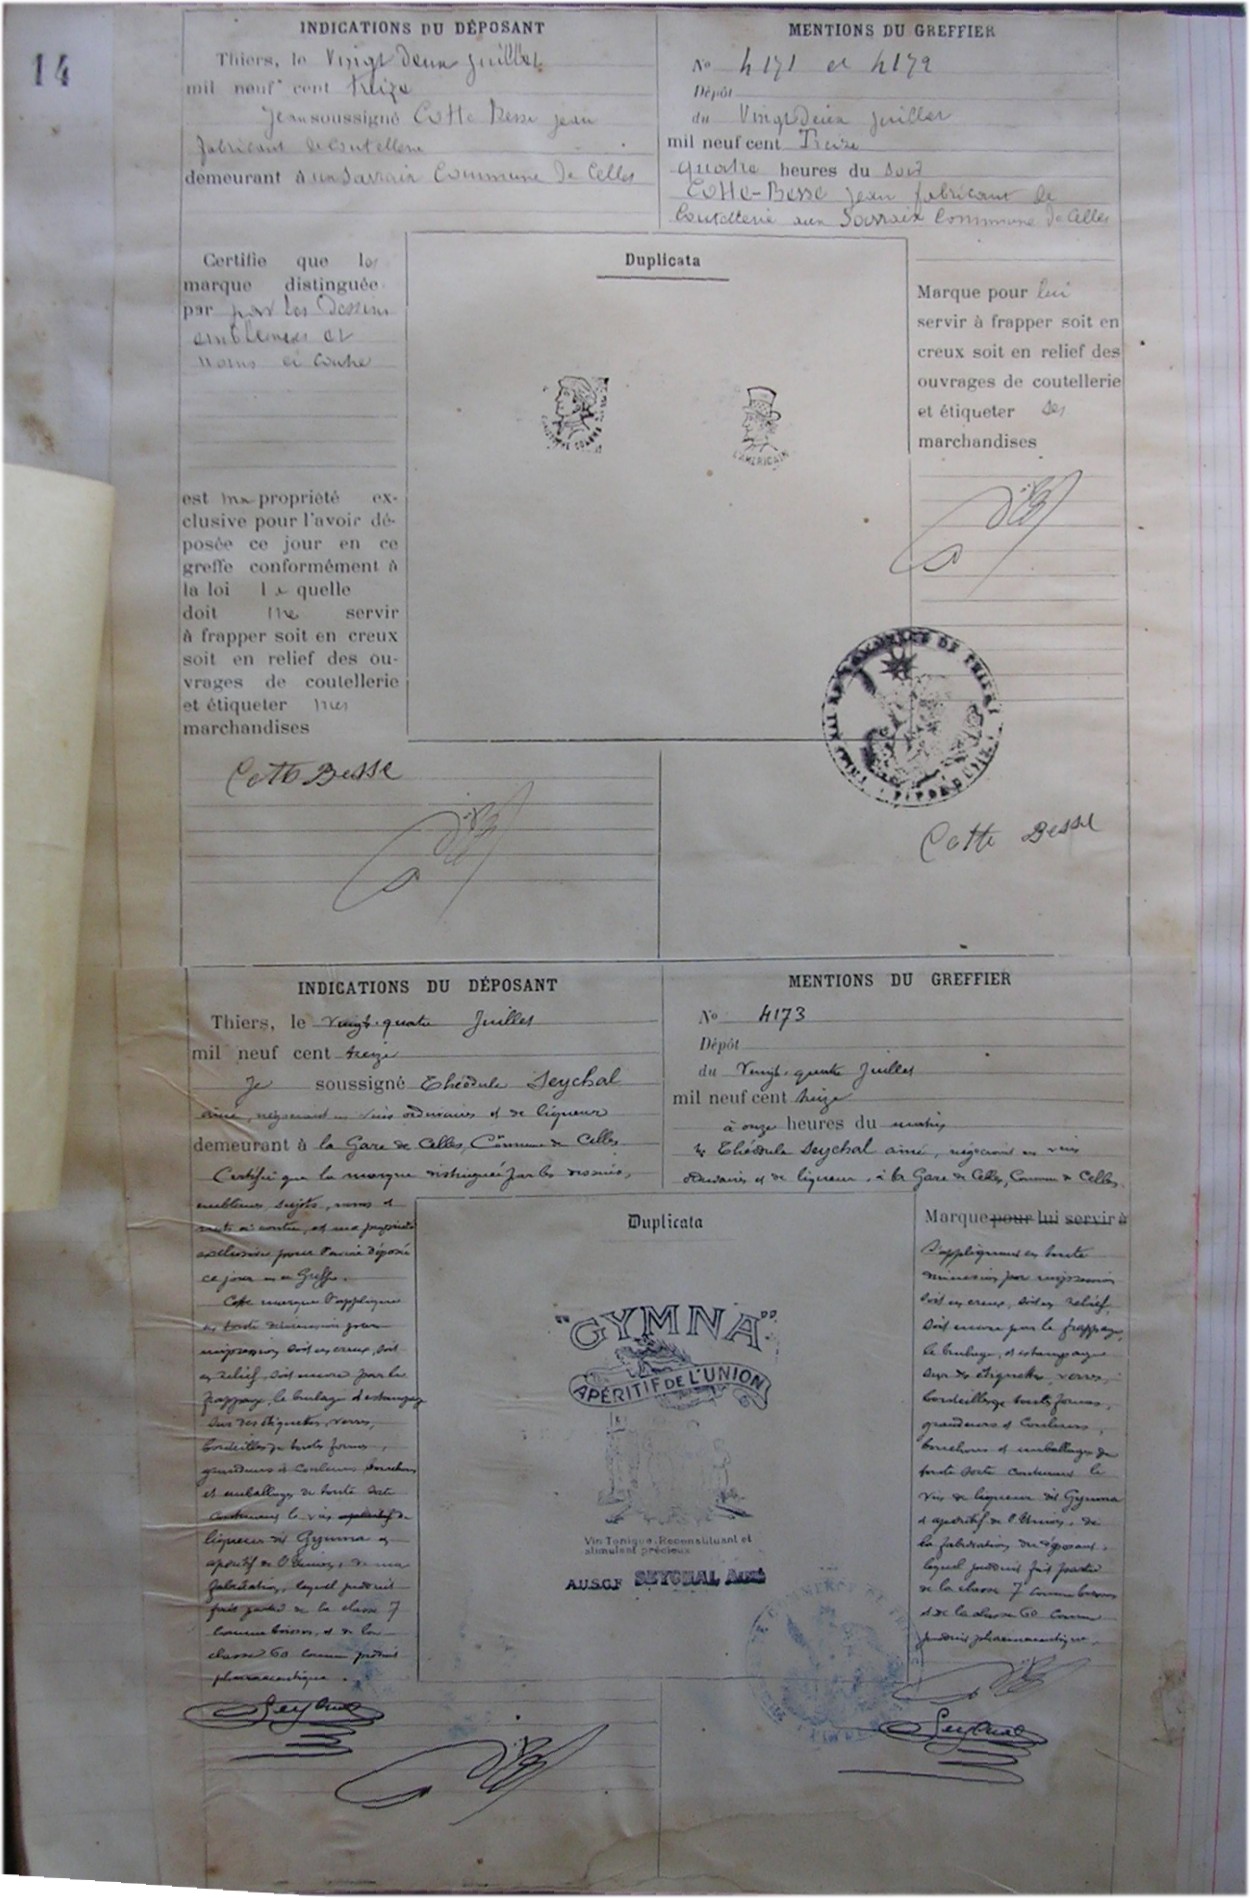 14
INDICATIONS DU DÉPOSANT
Thiers, le Vingt Deux juillet
mil neuf cent treize
Je soussigné Cotte Besse Jean
fabricant de coutellerie
demeurant à Commune de Celles
Certifie que la
marque distinguée
par par les Dessins
emblemes et
noms ci contre
est ma propriété ex-
clusive pour l'avoir dé-
posée ce jour en ce
greffe conformément à
la loi la quelle
doit me servir
à frapper soit en creux
soit en relief des ou-
vrages de coutellerie
et étiqueter mes
marchandises
Cotte Besse
MENTIONS DU GREFFIER
No 4171 et 4172
Dépôt
du Vingt Deux juillet
mil neuf cent Treize
quatre heures du soir
Cotte-Besse Jean fabricant de
Coutellerie Commune de Celles
Duplicata
L'AMERICAIN
Marque pour lui
servir à frapper soit en
creux soit en relief des
ouvrages de coutellerie
et étiqueter ses
marchandises
Cotte Besse
INDICATIONS DU DÉPOSANT
Thiers, le vingt-quatre Juillet
mil neuf cent treize
Je soussigné Théodule Seychal
ainé, négociant en vins ordinaires et de liqueur
demeurant à la Gare de Celles, Cne de Celles
Certifie que la marque distinguée par les dessins,
emblemes, sujets, noms et
ci contre, est ma propriété
exclusive pour l'avoir déposée
ce jour en ce Greffe.
Cette marque s'applique
en toute dimension par
impression soit en creux, soit
en relief, soit encore par le
frappage, le brulage, l'estampage
sur des étiquettes, verres,
bouteilles de toutes formes,
grandeurs et couleurs, bouchons
et emballages de toute sorte
contenant le vin de
liqueur dit Gymna et
apéritif de l'Union, de ma
fabrication, lequel produit
fait partie de la classe 7
comme boisson, et de la
classe 60 comme produit
pharmaceutique.
Seychal
MENTIONS DU GREFFIER
No 4173
Dépôt
du Vingt-quatre Juillet
mil neuf cent treize
à onze heures du matin
Théodule Seychal ainé, négociant en vins
ordinaires et de liqueur, à la Gare de Celles, Commune de Celles.
Duplicata
"GYMNA"
APÉRITIF DE L'UNION
Vin Tonique. Reconstituant et
stimulant précieux
A.U.S.G.F SEYCHAL Ainé
Marque pour lui servir à
s'appliquant en toute
dimension par impression
soit en creux, soit en relief,
soit encore par le frappage,
le brulage, l'estampage
sur des étiquettes, verres,
bouteilles de toutes formes,
grandeurs et couleurs,
bouchons et emballages de
toute sorte contenant le
vin de liqueur dit Gymna
et apéritif de l'Union, de
la fabrication du déposant,
lequel produit fait partie
de la classe 7 comme boisson
et de la classe 60 comme
produit pharmaceutique.
Seychal